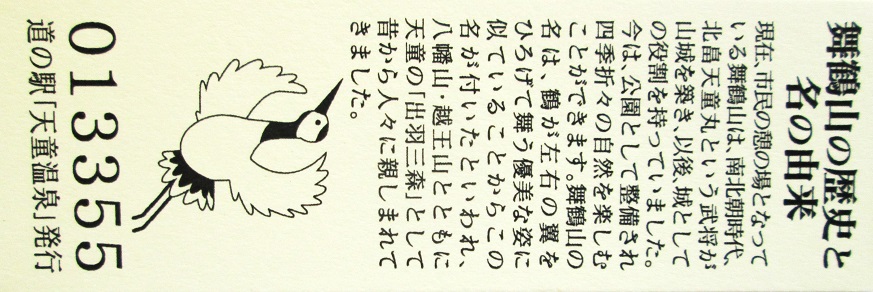 舞鶴山の歴史と
名の由来
現在、市民の憩の場となって
いる舞鶴山は、南北朝時代、
北畠天童丸という武将が
山城を築き、以後、城として
の役割を持っていました。
今は、公園として整備され
四季折々の自然を楽しむ
ことができます。舞鶴山の
名は、鶴が左右の翼を
ひろげて舞う優美な姿に
似ていることからこの
名が付いたといわれ、
八幡山・越王山とともに
天童の「出羽三森」として
昔から人々に親しまれて
きました。
013355
道の駅「天童温泉」発行